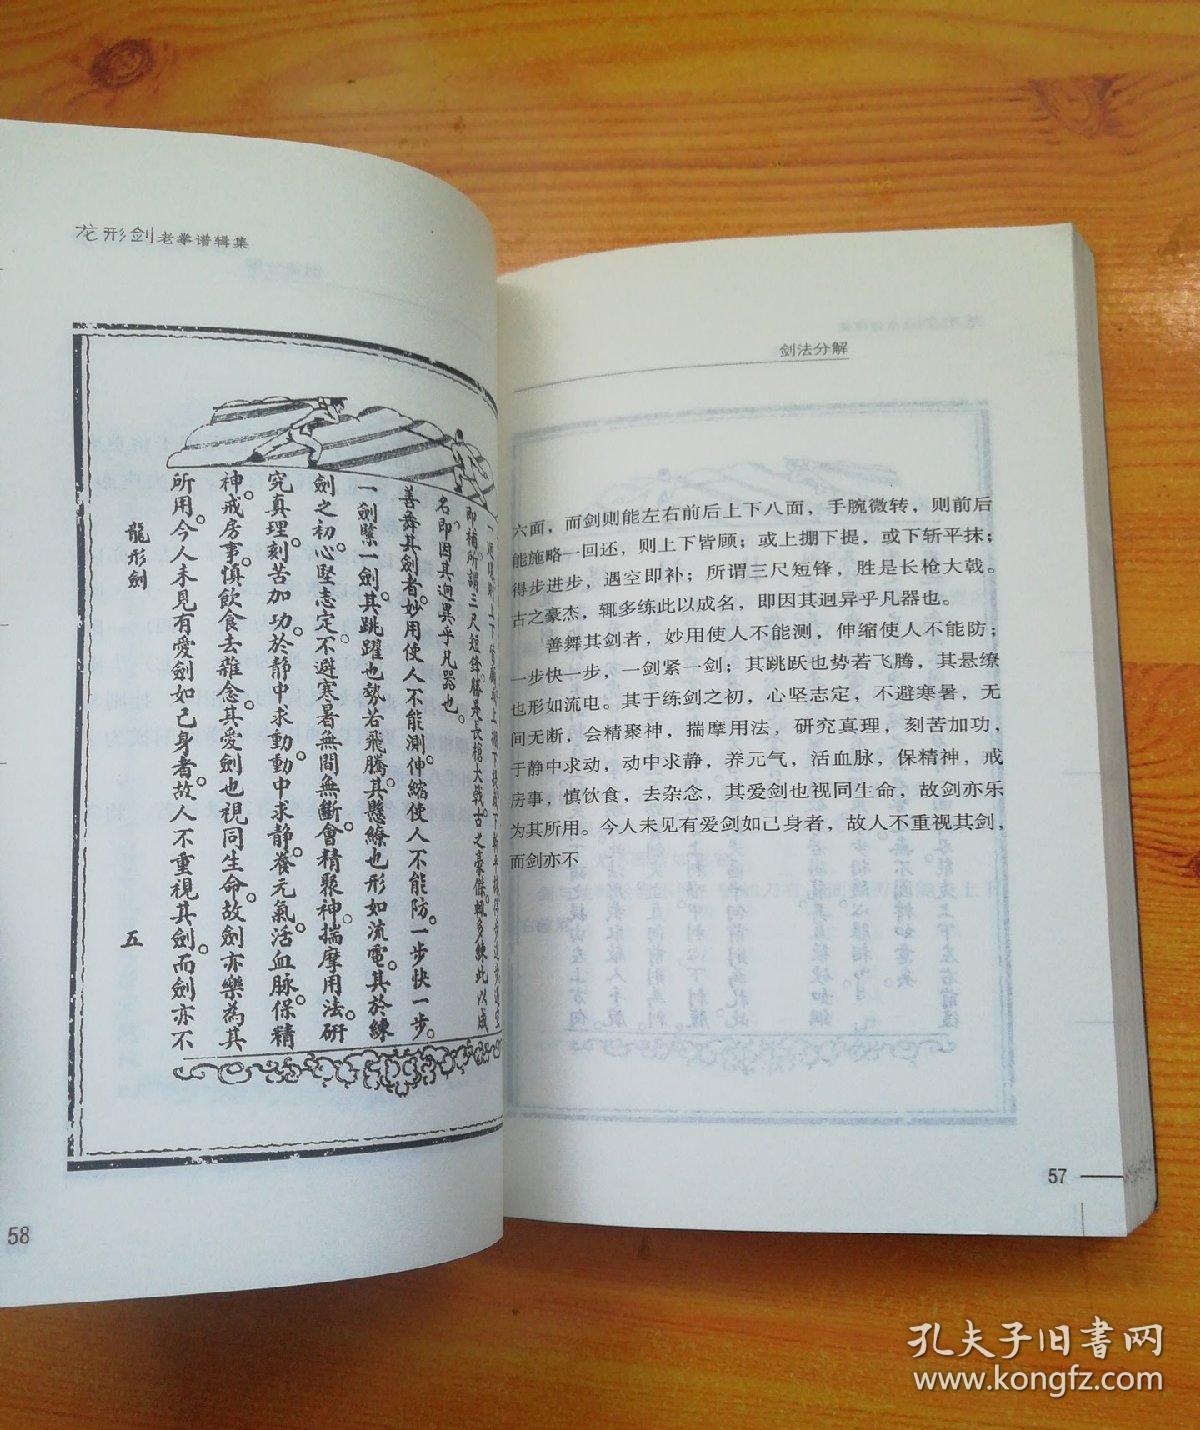 龙形剑老拳谱辑集
名。即因其迥異乎凡器也。
善舞其劍者。妙用使人不能測。伸縮使人不能防。一步快一步。
一劍緊一劍。其跳躍也勢若飛騰。其懸繚也形如流電。其於練
劍之初。心堅志定。不避寒暑。無間無斷。會精聚神。揣摩用法。研
究真理。刻苦加功。於静中求動。動中求静。養元氣。活血脉。保精
神。戒房事。慎飲食。去雜念。其愛劍也視同生命。故劍亦樂為其
所用。今人未見有愛劍如己身者。故人不重視其劍。而劍亦不
龍形劍
五
58
剑法分解
六面，而剑则能左右前后上下八面，手腕微转，则前后
能施略一回还，则上下皆顾；或上掤下提，或下斩平抹；
得步进步，遇空即补；所谓三尺短锋，胜是长枪大戟。
古之豪杰，辄多练此以成名，即因其迥异乎凡器也。
善舞其剑者，妙用使人不能测，伸缩使人不能防；
一步快一步，一剑紧一剑；其跳跃也势若飞腾，其悬缭
也形如流电。其于练剑之初，心坚志定，不避寒暑，无
间无断，会精聚神，揣摩用法，研究真理，刻苦加功，
于静中求动，动中求静，养元气，活血脉，保精神，戒
房事，慎饮食，去杂念，其爱剑也视同生命，故剑亦乐
为其所用。今人未见有爱剑如己身者，故人不重视其剑，
而剑亦不
57
孔夫子旧书网
www.kongfz.com